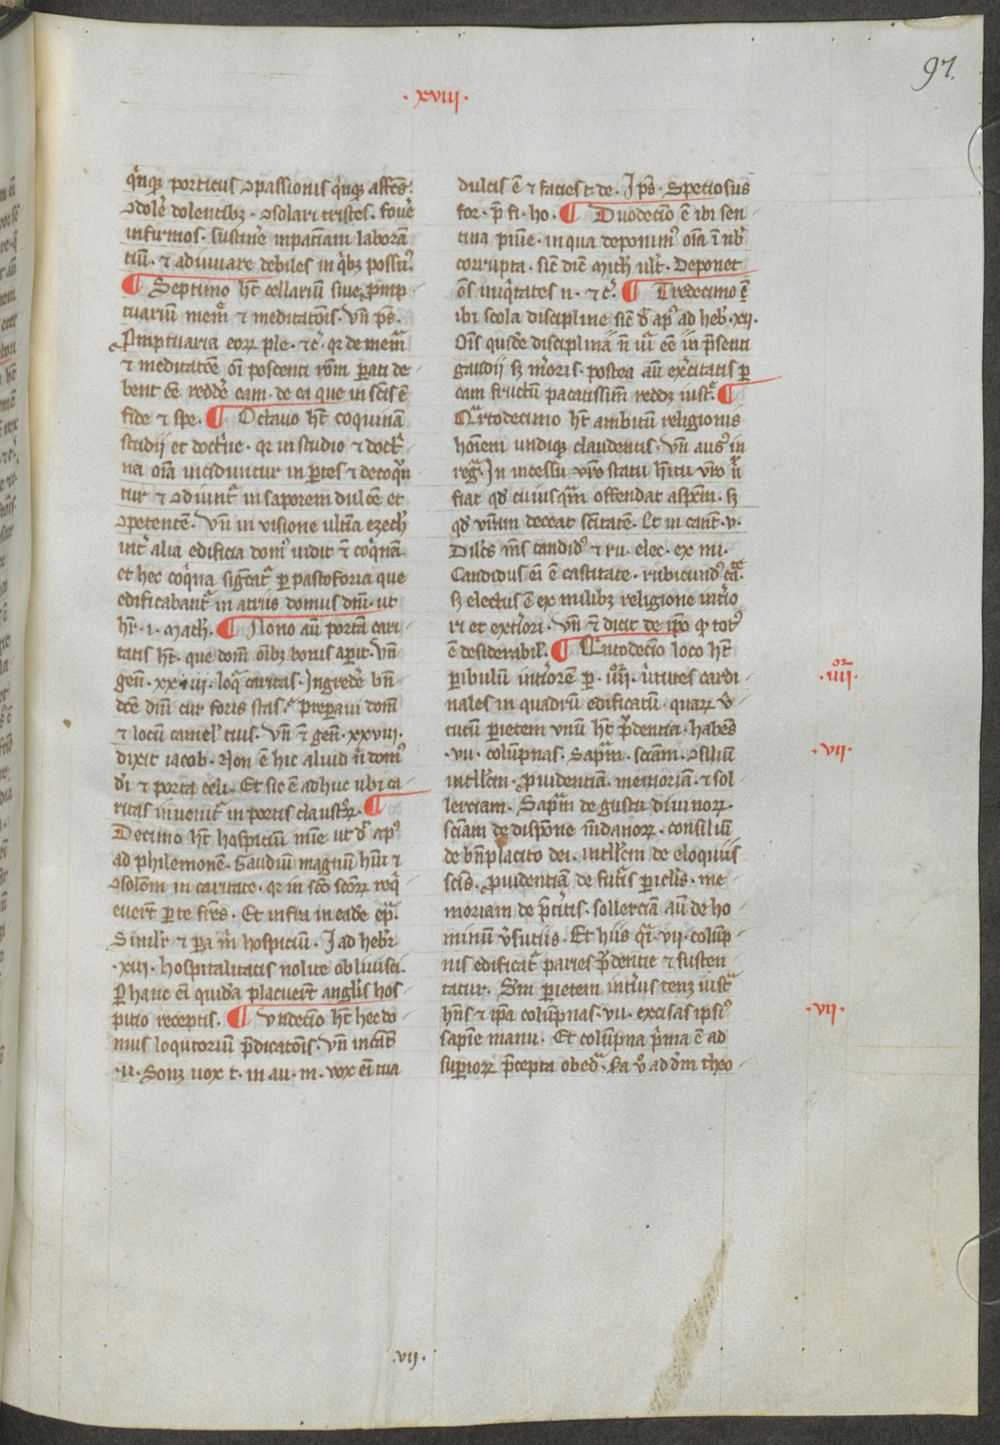 97.
·xviii·
q̄nq; porticus ɔpassionis q̄nq; affc̄s.
ɔdolē dolentibz · ɔsolari tristes · fovē
infirmos · sustinē inpatīam laborā
tiū · ⁊ adiuuare debiles in q̄bz possum᷒
¶ Septimo ht̄ cellariū siue promp
tuariū memō ⁊ meditatōis · Vn̄ ps̄ ·
Promptuaria eorꝝ ple · ⁊c̄ · qr de memō
⁊ meditatōe oī poscenti rōm parati de
bent eē reddē eam · de ea que in sc̄is ē
fide ⁊ spe · ¶ Octauo ht̄ coquinā
studij et doctrīe · qr in studio ⁊ doctī
na oīa inciduntur in partes ⁊ decoqūn
tur ⁊ ɔdiunt᷑ in saporem dulcē et
ɔpetentē · Vn̄ in visione ultīa ezech
int̄ alia edificia dom᷒ uidit ⁊ coq̄nā ·
et hec coq̄na sign̄cat᷑ per pastoforia que
edificabant᷑ in atriis domus dn̄i · ut
hr̄ · i · Mach · ¶ Nono aū portā cari
tatis ht̄ · que dom̄ oībz bonis aperit · Vn̄
gen̄ · xxiiii · loq̄ caritas · Ingredē bn̄
dc̄e dn̄i cur foris stas · Preparaui dom̄
⁊ locū camel᷒ tuis · Vn̄ ⁊ gen̄ · xxviii ·
dixit iacob · Non ē hic aliud n̄ dom᷒
dī ⁊ porta celi · Et sic ē adhuc ubi ca
ritas inuenit᷑ in portis claustꝝ · ¶
Decimo ht̄ hospiciū mīe ut d᷑ ap᷒
ad philemonē · Gaudiū magnū hūi ⁊
ɔsolōm in caritate · qr in sc̄o scōꝝ reqi
euert̄ per te fr̄es · Et infra in eadē ep̄ ·
Similr̄ ⁊ para m̄ hospiciū · J ad hebr̄
· xiii · hospitalitatis nolite obliuisci ·
Per hanc eī quidā placuert̄ angl̄is hos
pitio receptis · ¶ Vndecīo ht̄ hec do
mus loqutoriū p̄dicatōis Vn̄ in cant̄
· ii · Sonz uox t · in au · m · vox eī tua
dulcis ē ⁊ facies t · de · J ps̄ · Spetiosus
for · p̄ fi · ho · ¶ Duodecīo ē ibi sen
tina pnīe · in qua deponim᷒ oīa ī nob̄
corrupta · sic̄ dic̄ Mich ult̄ · Deponet
oēs iniq̄tates n · ⁊ c̄ · ¶ Tredecimo ē
ibi scola discipline sic̄ d᷑ ap᷒ ad heb̄ · xii ·
Oīs quidē disciplina in p̄senti
gaudij s; m̄oris · postea aū exc̄itatis per
eam fructū pacatissim̄ reddz iust᷑ · ¶
Quartodecimo ht̄ ambitū religionis
hoīem undiq; claudentis · Vn̄ aug᷒ in
reḡ · In incessu uro statu hītu vro n̄l
fiat qd cuiusq̄m offendat aspc̄m · s;
qd vram deceat sc̄itatē · Et in cant̄ · v ·
Dilc̄s m̄s candid᷒ ⁊ ru · elec · ex mi ·
Candidus eī ē castitate · rubicund᷒ ca ·
s; electus ē ex milibz religione int̄io
ri et ext̄iori · Vn̄ ⁊ dicit᷑ de ip̄o qr tot᷒
ē desiderabil᷒ · ¶ Quītodecīo loco ht̄
peribulū int̄iorē per · iiiior · v̄tutes cardi
nales in quadrū edificatū · quarꝝ v̄
tutū parietem unū ht̄ pr̄dentia · habēs
· vii · colūpnas · Sap̄m · sciam · ɔsiliū
intllc̄m · prouidentiam · memoriam · ⁊ sol
lerciam · Sap̄m de gustu diuinorꝝ ·
sciam de dispōne mūdanorꝝ · consiliū
de bn̄placito dei · intllc̄m de eloquiis
scīs · prouidentiam de fut̄is periclis · me
moriam de pret̄itis · sollerciam aū de ho
minū v̄sutiis · Et hiis q̄i · vii · colūp
nis edificat᷑ paries pr̄dentie ⁊ susten
tatur · Scdm parietem int̄ius tenz iust᷑
hn̄s ⁊ ip̄a colūpnas · vii · excisas ipsi᷒
sapīe manu · Et colūpna prima ē ad
superiorꝝ p̄cepta obed̄ · Sa v̄o ad dm̄ theo
·iiiior·
·vii·
·vii·
·vii·